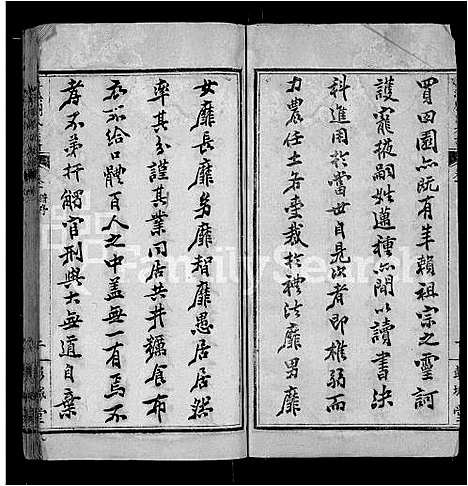 買田園亦既有年賴祖宗之靈訶
護寵掖嗣姓邁種亦間以讀書決
科進用於當世自見出者即椎弱而
力農任土名率裁於禮法靡男靡
女靡長靡幼靡智靡愚居居然
率其分謹其業同居共井糲食布
衣示給口體百人之中蓋無一有焉不
孝不弟扞觸官刑與大無道自棄
FamilySearch